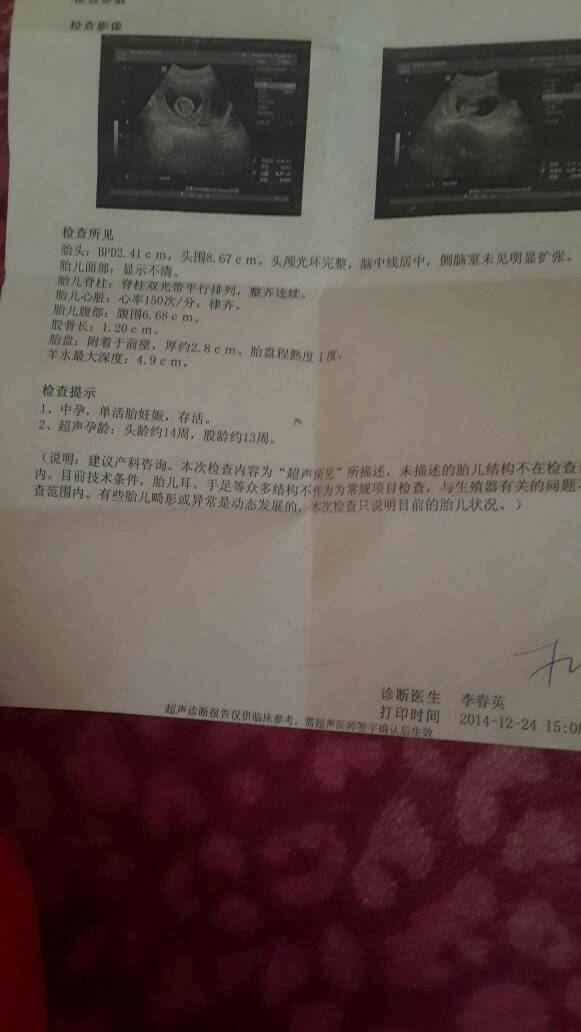 检查影像
检查所见
胎头：BPD2.41cm，头围8.67cm。头颅光环完整，脑中线居中，侧脑室未见明显扩张。
胎儿面部：显示不清。
胎儿脊柱：脊柱双光带平行排列，整齐连续。
胎儿心脏：心率150次/分，律齐。
胎儿腹部：腹围6.68cm。
股骨长：1.20cm。
胎盘：附着于前壁，厚约2.8cm。胎盘程熟度Ⅰ度。
羊水最大深度：4.9cm。
检查提示
1、中孕，单活胎妊娠，存活。
2、超声孕龄：头龄约14周，股龄约13周。
（说明：建议产科咨询。本次检查内容为“超声所见”所描述，未描述的胎儿结构不在检查
内。目前技术条件，胎儿耳、手足等众多结构不作为为常规项目检查，与生殖器有关的问题
查范围内。有些胎儿畸形或异常是动态发展的，本次检查只说明目前的胎儿状况。）
诊断医生 李春英
打印时间 2014-12-24 15:08
超声诊断报告仅供临床参考，需超声医师签字确认后生效